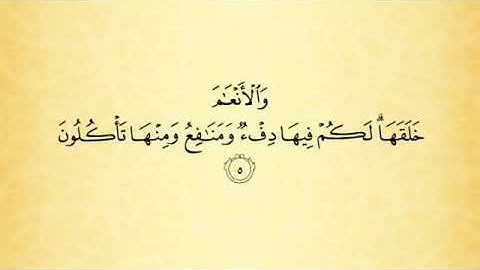 وَٱلۡأَنۡعَٰمَ
خَلَقَهَاۗ لَكُمۡ فِيهَا دِفۡءٞ وَمَنَٰفِعُ وَمِنۡهَا تَأۡكُلُونَ
٥